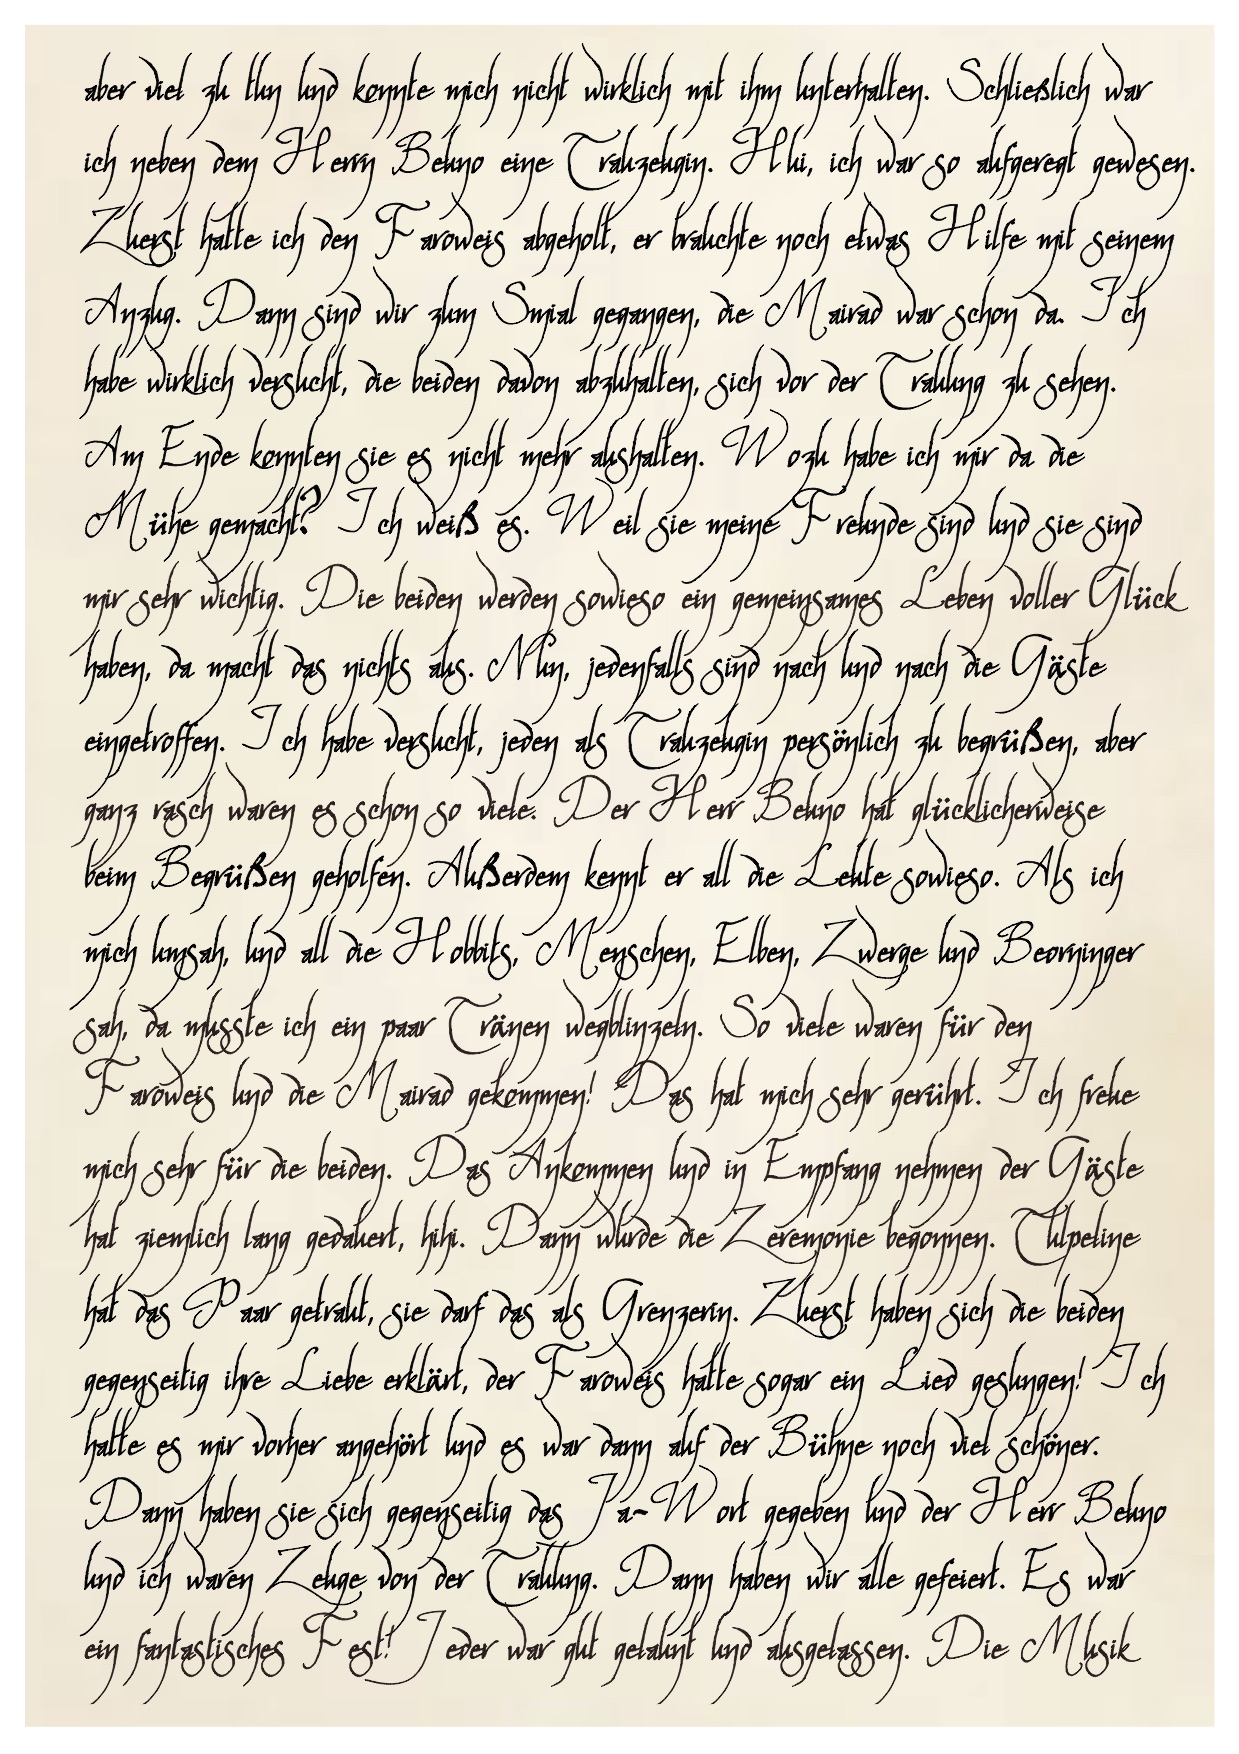 aber viel zu tun und konnte mich nicht wirklich mit ihm unterhalten. Schließlich war
ich neben dem Herrn Beuno eine Trauzeugin. Hui, ich war so aufgeregt gewesen.
Zuerst hatte ich den Faroweis abgeholt, er brauchte noch etwas Hilfe mit seinem
Anzug. Dann sind wir zum Smial gegangen, die Mairad war schon da. Ich
habe wirklich versucht, die beiden davon abzuhalten, sich vor der Trauung zu sehen.
Am Ende konnten sie es nicht mehr aushalten. Wozu habe ich mir da die
Mühe gemacht? Ich weiß es. Weil sie meine Freunde sind und sie sind
mir sehr wichtig. Die beiden werden sowieso ein gemeinsames Leben voller Glück
haben, da macht das nichts aus. Nun, jedenfalls sind nach und nach die Gäste
eingetroffen. Ich habe versucht, jeden als Trauzeugin persönlich zu begrüßen, aber
ganz rasch waren es schon so viele. Der Herr Beuno hat glücklicherweise
beim Begrüßen geholfen. Außerdem kennt er all die Leute sowieso. Als ich
mich umsah, und all die Hobbits, Menschen, Elben, Zwerge und Beorninger
sah, da musste ich ein paar Tränen wegblinzeln. So viele waren für den
Faroweis und die Mairad gekommen! Das hat mich sehr gerührt. Ich freue
mich sehr für die beiden. Das Ankommen und in Empfang nehmen der Gäste
hat ziemlich lang gedauert, hihi. Dann wurde die Zeremonie begonnen. Tulpeline
hat das Paar getraut, sie darf das als Grenzerin. Zuerst haben sich die beiden
gegenseitig ihre Liebe erklärt, der Faroweis hatte sogar ein Lied gesungen! Ich
hatte es mir vorher angehört und es war dann auf der Bühne noch viel schöner.
Dann haben sie sich gegenseitig das Ja-Wort gegeben und der Herr Beuno
und ich waren Zeuge von der Trauung. Dann haben wir alle gefeiert. Es war
ein fantastisches Fest! Jeder war gut gelaunt und ausgelassen. Die Musik